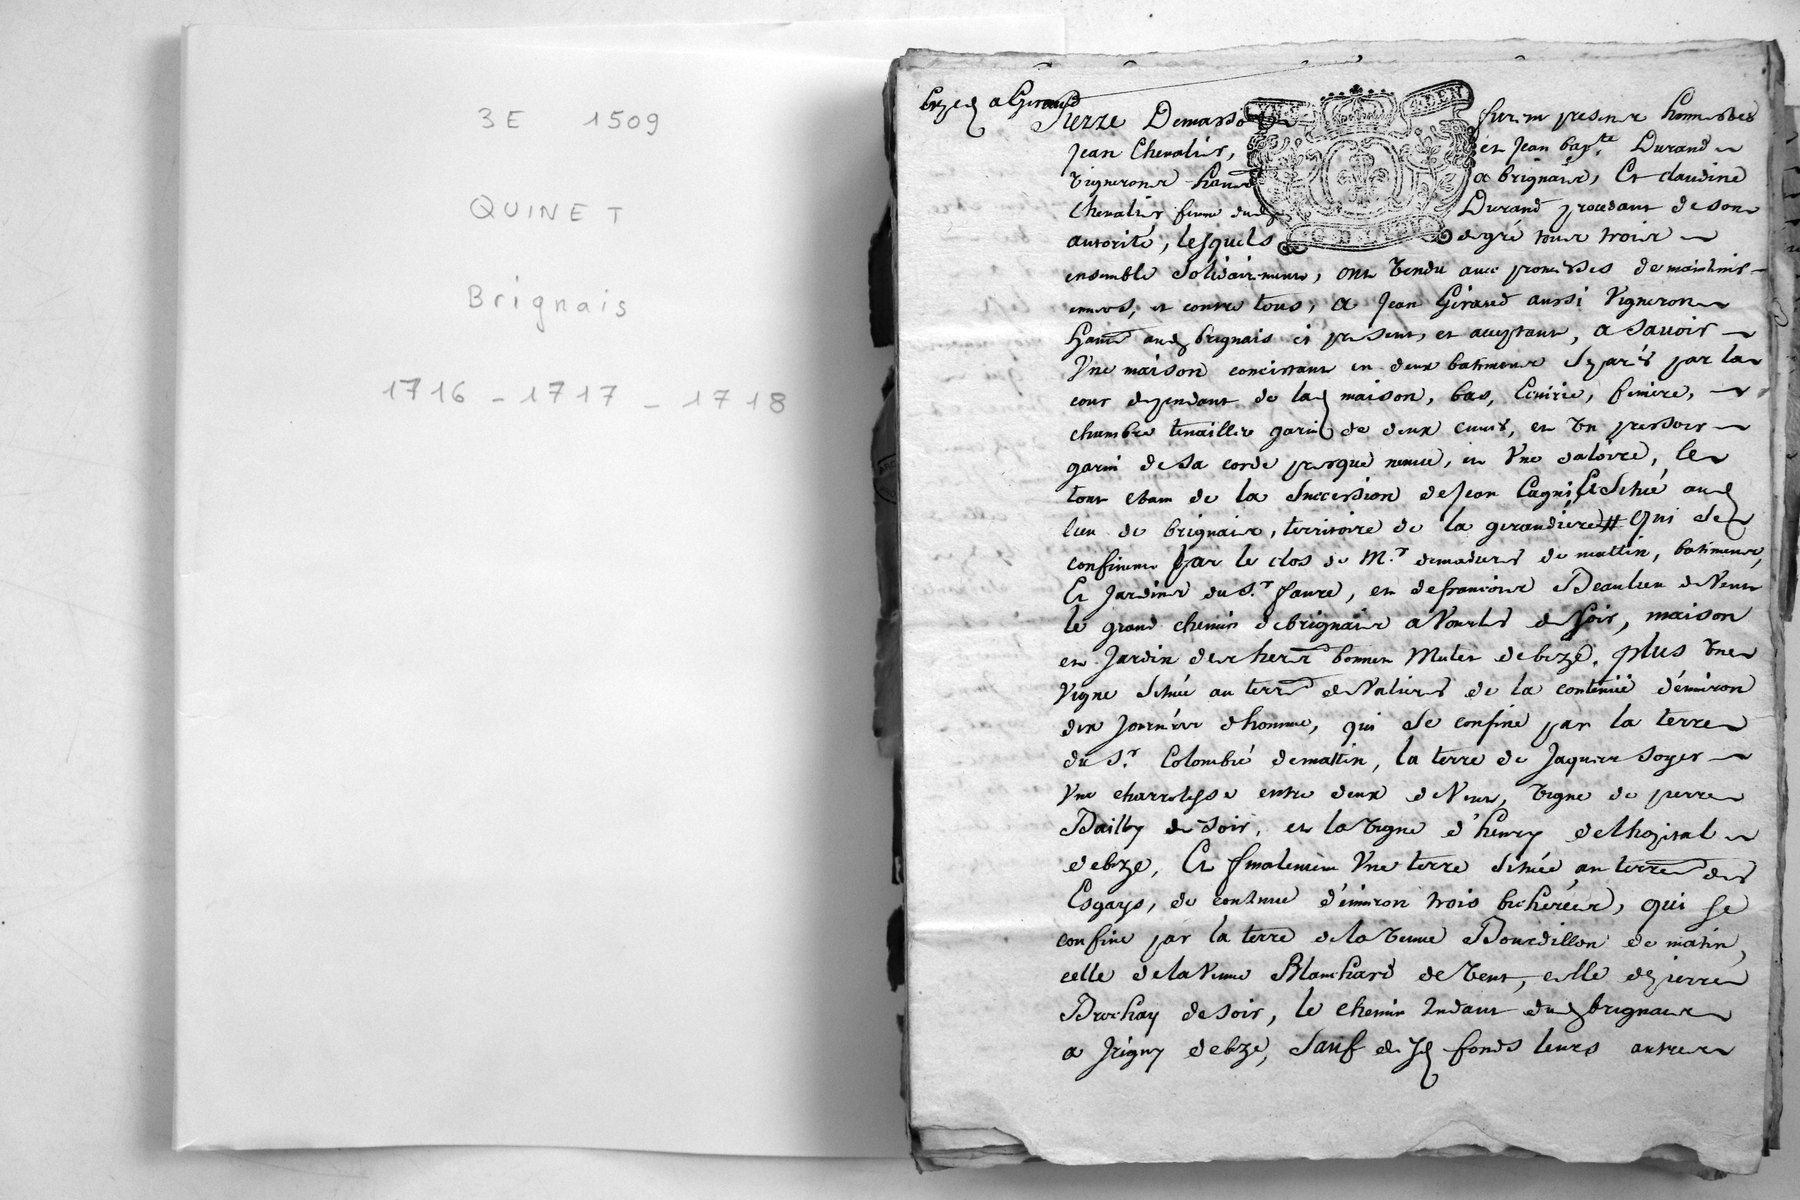 3E 1509
QUINET
Brignais
1716 - 1717 - 1718
Exped a Geraud
furent presents honnestes
Jean Chevalier, et Jean bapte Durand
vignerons hants a brignais, Et claudine
Chevalier femme dud Durand procedant de son
autorité, lesquels de gré tous trois
ensemble solidairement, ont vendu avec promesses de maintenir
envers, et contre tous, a Jean Géraud aussi Vigneron
hant aud brignais ici present, et acceptant, a savoir
Une maison concistant en deux batiments separés par la
cour dependant de lad maison, bas, Ecuirie, feniere,
chambre tenaillier garni de deux cuves, et un pressoir
garni de sa corde presque neuve, et Une
tout etant de la Succession de Jean Situé aud
lieu de brignais, territoire de la geraudiere # qui se
confinent par le clos de Mr de mattin, batiments,
Et Jardins du Sr faure, et de francois Beaulieu de Vent
le grand chemin de brignais a Vourles de soir, maison
et Jardin des hers bonnet Mulet de bize, plus Une
Vigne située au terre de de la contenüe d'environ
dix Journées d'homme, qui se confine par la terre
du Sr Colombé de mattin, la terre de Jaques Soyer
Une entre deux de Vent, Vigne de pierre
Bailly de soir, et la Vigne d'henry delhopital
de bize, Et finalement Une terre située au terre des
Esgays, de contenue d'environ trois bicherées, qui se
confine par la terre de la Veuve Bourdillon de matin,
celle de la Veuve Blanchard de Vent, celle de pierre
Brochay de soir, le chemin tendant dud brignais
a Irigny de bize, Sauf de sd fonds leurs autres